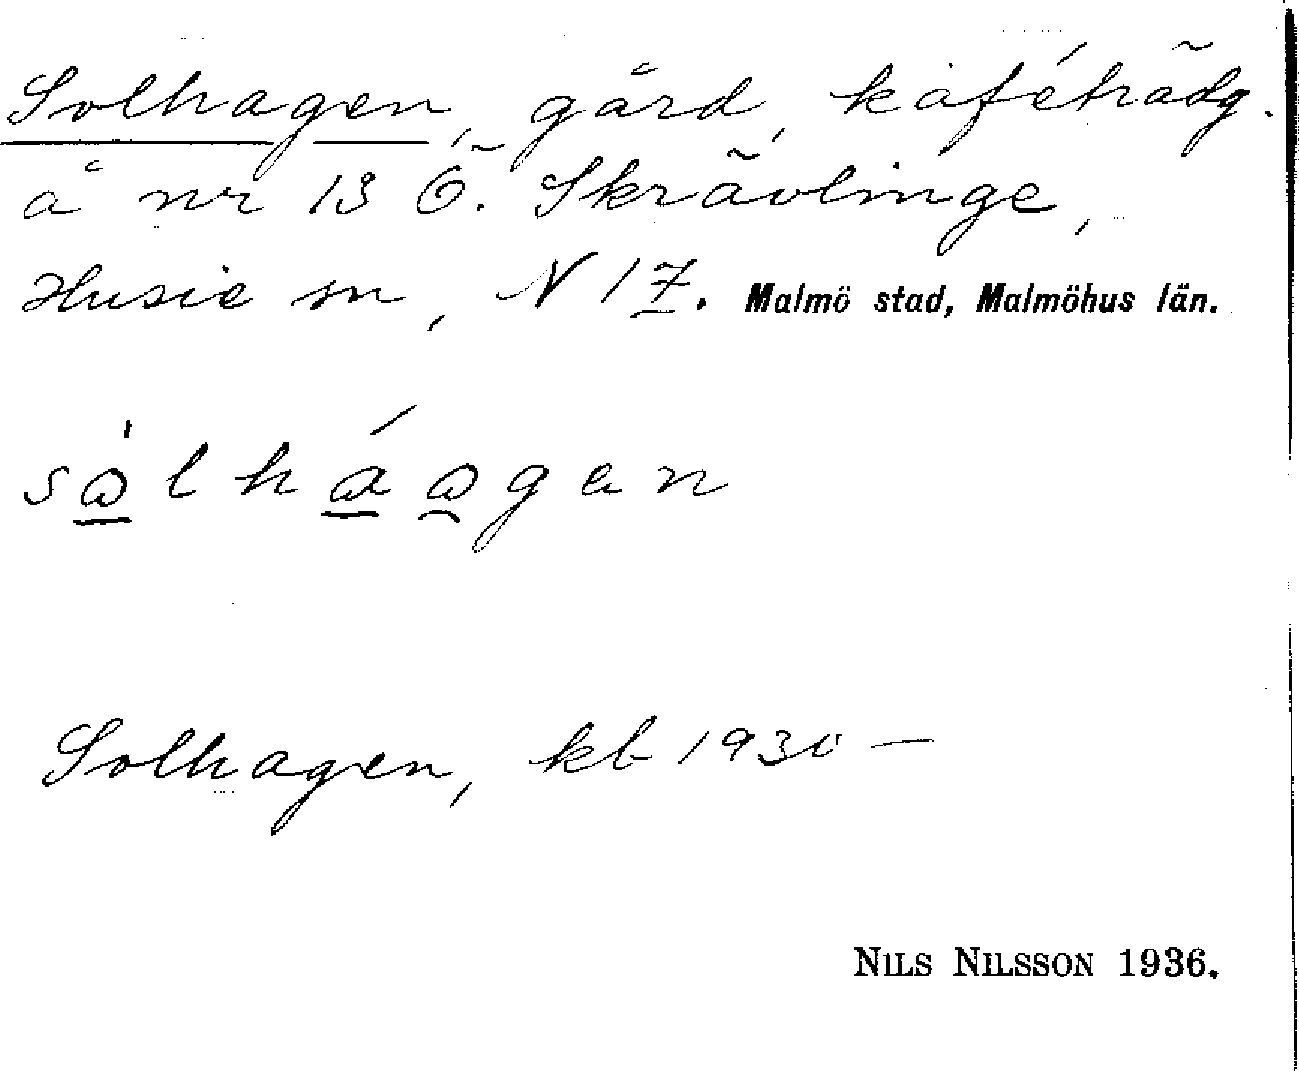 Solhagen, gård, kaféträdg.
å nr 13 Ö. Skrävlinge,
Husie sn, N 17. Malmö stad, Malmöhus län.
Solhagen, kb 1930 —
NILS NILSSON 1936.